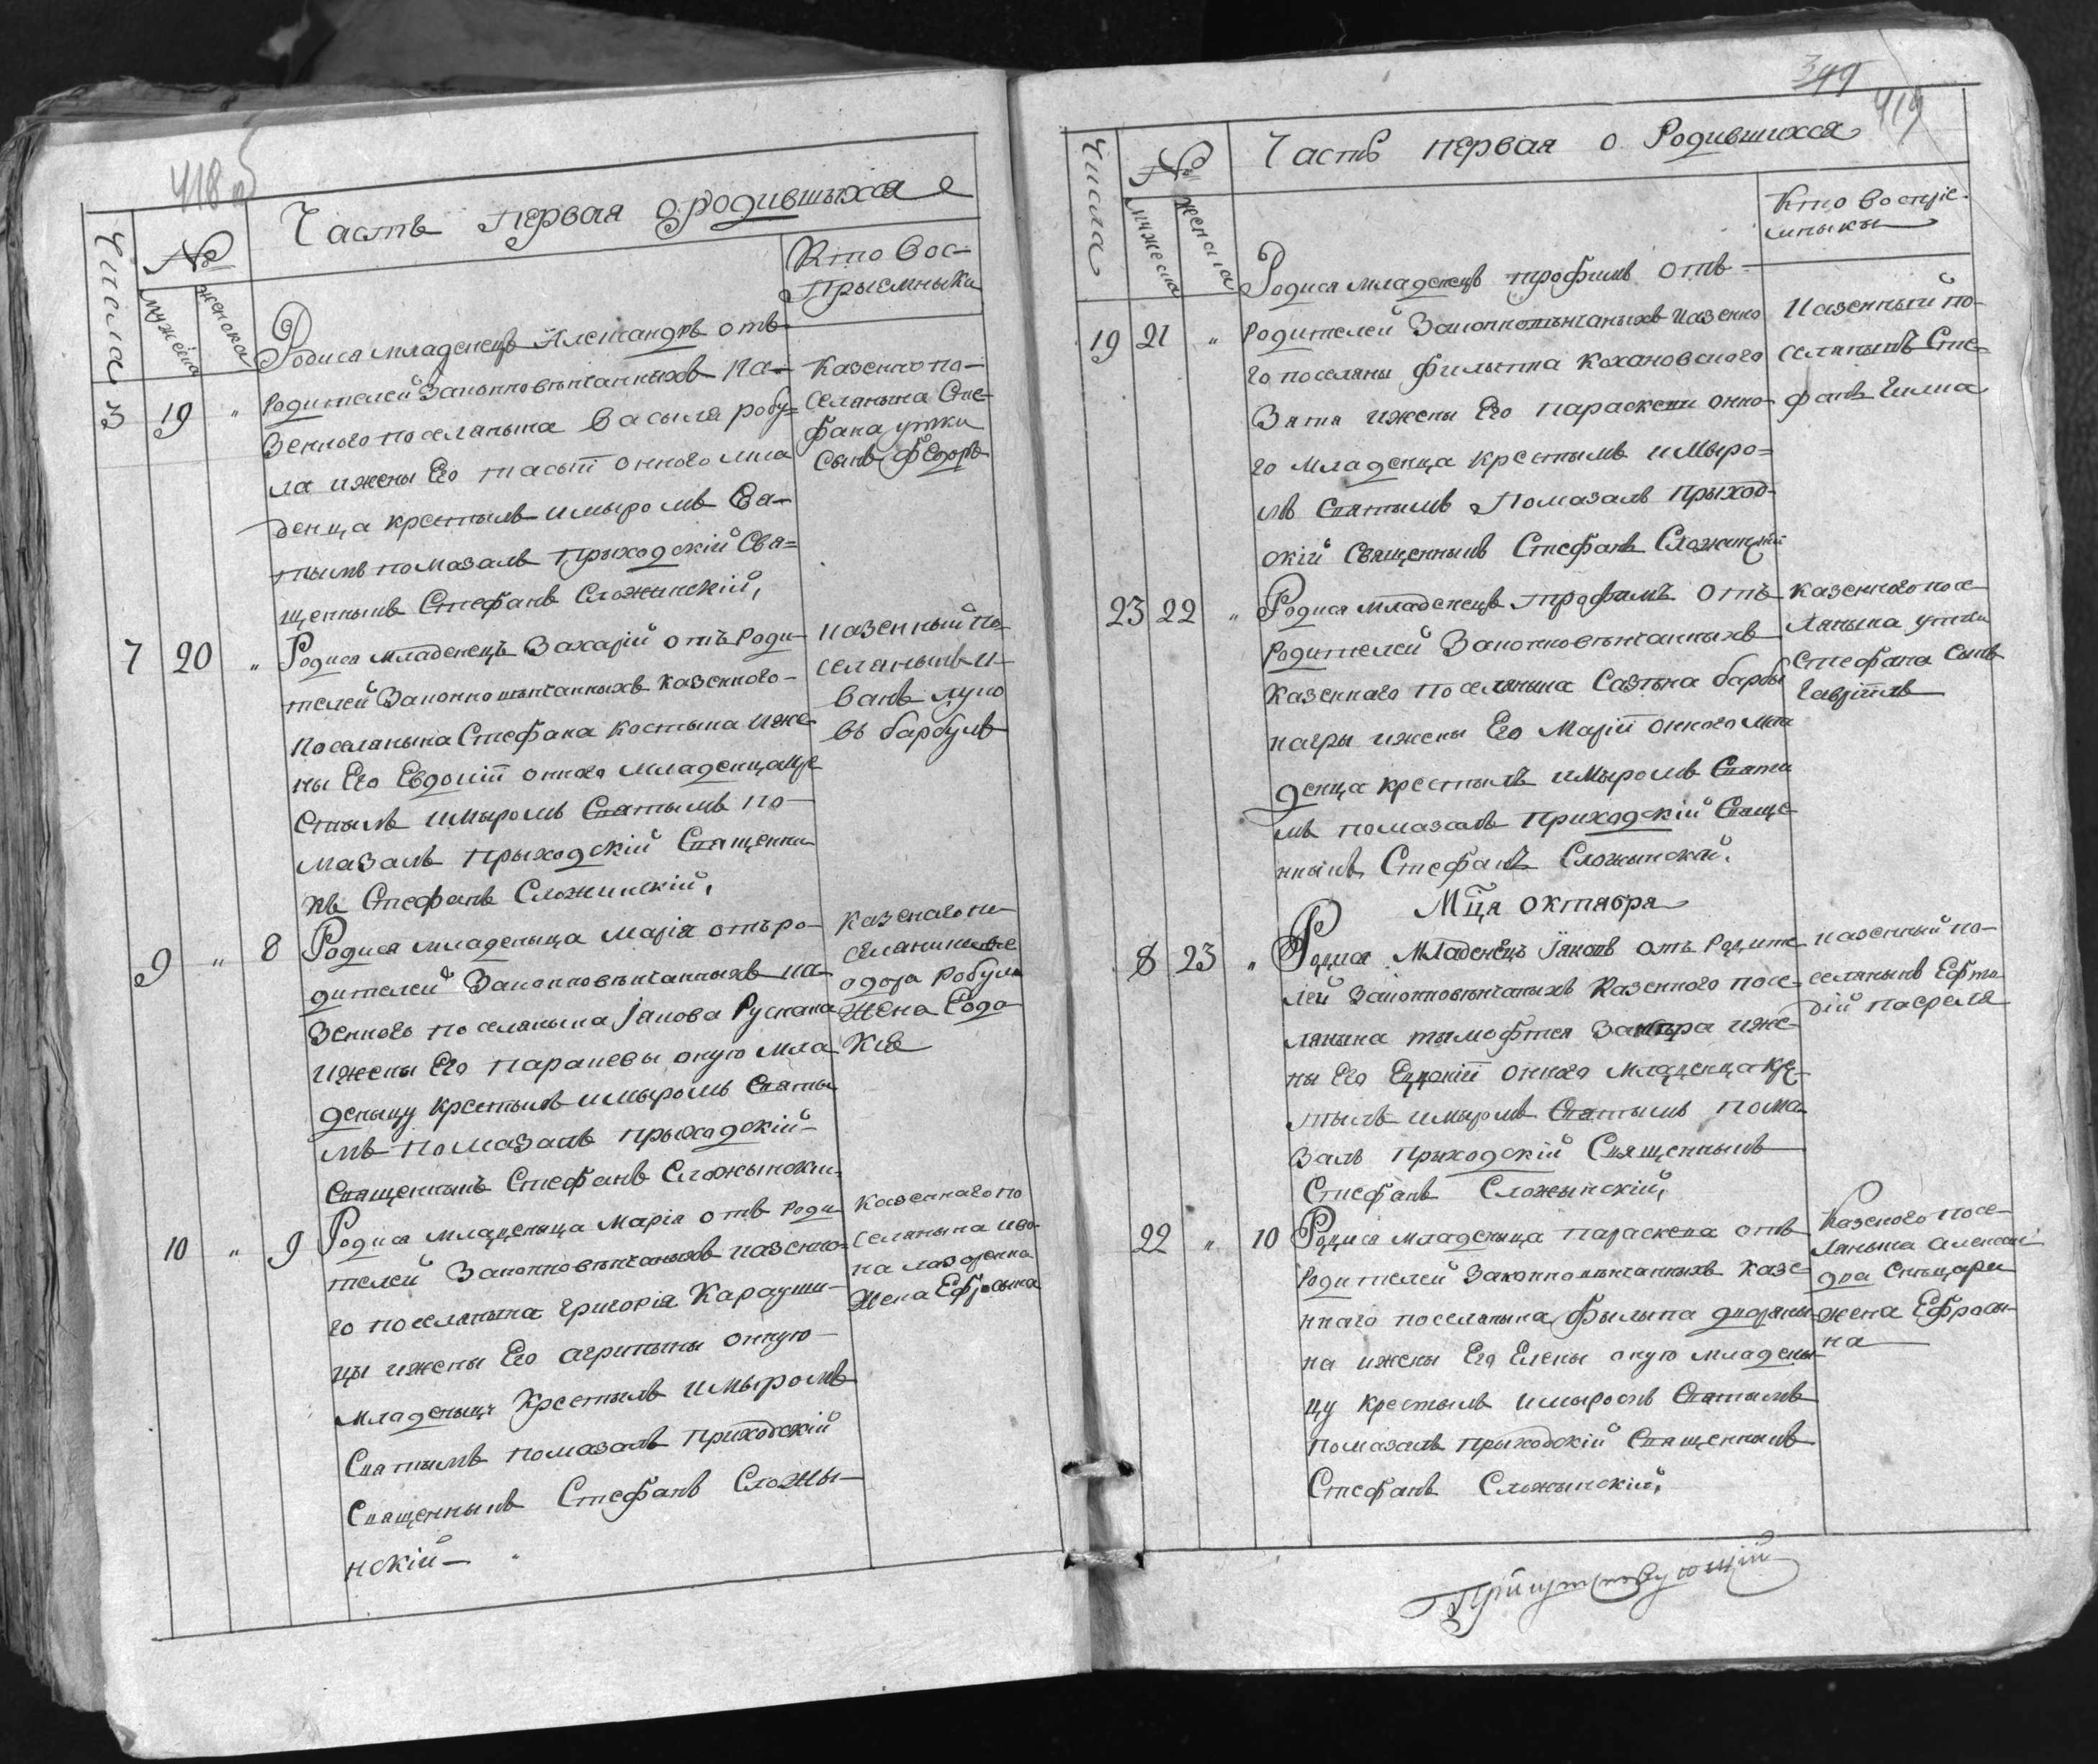 418 об
Часть первая о родившыхся
Числа
№
мужеска
женска
Кто вос-
прыемныки
3 19 „
Родися младенецъ Александръ отъ
родителей Законновѣнчанныхъ ка-
зенного поселянына Василя робу=
ла ижены Его тасыи онного мла
денца крестылъ имыромъ Свя-
тымъ помазалъ прыходскій Свя=
щенныкъ Стефанъ Сложинскій,
казенного по-
селянына Сте-
фана утки
сынъ Федоръ
7 20 „
Родися младенецъ Захарій отъ Роди-
телей Законновѣнчанныхъ казенного-
поселянына Стефана костына иже
ны Его Евдокіи онного младенца кре
стылъ имыромъ Святымъ по-
мазалъ прыходскій Священны
къ Стефанъ Сложинскій,
казенный по-
селяныкъ И-
ванъ лупо
въ барбулъ
9 „ 8
Родися младеныца Марія отъ ро-
дителей Законновѣнчанныхъ ка-
зенного поселянына Іакова Руснака
ижены Его параскевы оную мла
деныцу крестылъ имыромъ Святы
мъ помазалъ прыходскій
Священныкъ Стефанъ Сложынски
казеного по
одора робула
жена Евдо
кіа
10 „ 9
Родися младеныца Марія отъ Роди
телей Законновѣнчаныхъ казенно-
го поселянына Григорія Карауши-
цы ижены Его агрипыны онную
младеныцу Крестылъ имыромъ
Святымъ помазалъ приходскій
Священныкъ Стефанъ Сложы-
нскій-
казеннаго по
селянына ива-
на
жена Ефросына
419
Часть первая о Родившихся
Числа
№
мужеска
женска
Кто воспріе-
мныкы
19 21 „
Родися младенецъ трофимъ отъ
родителей Законновѣнчаныхъ казенно
го поселяны филыппа Кохановского
Зятя ижены Его параскеви онно-
го младенца крестылъ имыро=
мъ Святымъ помазалъ прыход-
скій Священныкъ Стефанъ Сложинскій
казенный по-
селяныкъ Сте-
фанъ
23 22 „
Родися младенецъ трофимъ отъ
родителей Законновѣнчанныхъ
казенного поселянына барбы
нагры ижены Его Маріи онного мла
денца крестылъ имыромъ Святы
мъ помазалъ приходскій Свяще
нныкъ Стефанъ Сложынскій.
казенного посе
лянына утки
Стефана сынъ
Гавріилъ
Мца октября
8 23 „
Родися младенецъ Іаковъ отъ родите
лей Законновѣнчаныхъ казенного посе-
лянына тымофтея иже-
ны Его Евдокіи онного младенца кре-
стылъ имыромъ Святымъ пома
залъ прыходскій Священныкъ
Стефанъ Сложынскій,
казенный по-
селяныкъ Ефти
22 „ 10
Родися младеныца параскева отъ
родителей Законновѣнчанныхъ казе-
ннаго поселянына филыпа дворяны-
на ижены Его Елены оную младены
цу крестылъ имыромъ Святымъ
помазалъ прыходскій Священныкъ
Стефанъ Сложынскій,
казеного посе-
лянына алексан
дра
жена Ефросы-
на